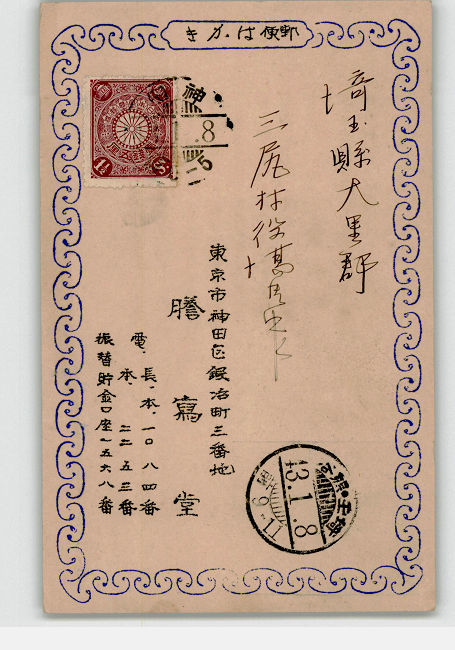 郵便はかき
埼玉縣大里郡
三尻村役場
東京市神田区鍛冶町三番地
謄寫堂
電、長、本、一〇八四番
本、二二五三番
振替貯金口座一五六八番
1½
神
.8
13.1.8
9-11